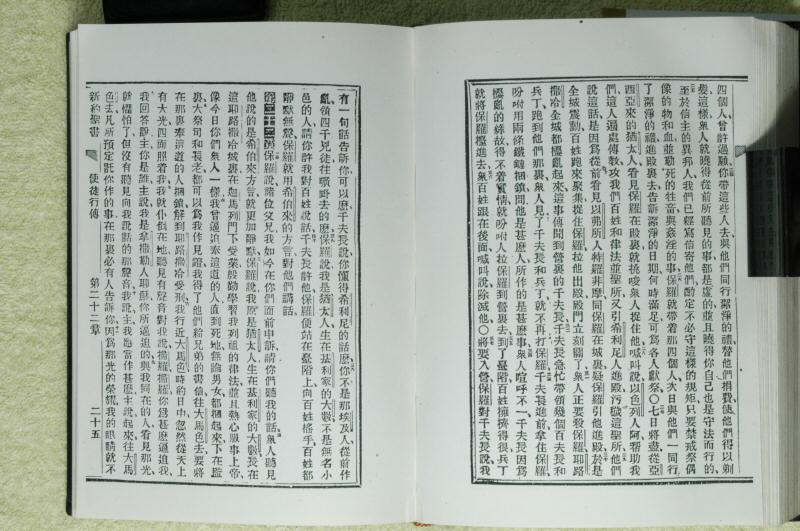 四個人、曾許過願、你帶這些人去、與他們同行潔淨的禮、替他們捐費、使他們得以剃
髮、這樣、衆人就曉得從前所聽見的事都是虛的、並且曉得你自己也是守法而行的、
至於信主的異邦人、我們已經寫信寄他們、酌定不必守這樣的規矩、只要禁戒祭偶
像的物、和血、並勒死的牲畜、與姦淫的事、保羅就帶着那四個人、次日與他們一同行
了潔淨的禮、進殿裏去、告訴潔淨的日期、何時滿足、可爲各人獻祭、〇七日將盡、從亞
西亞來的猶太人、看見保羅在殿裏、就挑唆衆人捉住他、喊叫說、以色列人阿、幫助我
們、這人遍處傳教、攻我們百姓和律法、並聖所、又引希利尼人進殿、污穢這聖所、他們
說這話、是因爲從前看見以弗所人特羅非摩、同保羅在城裏、疑保羅引他進殿、於是
全城震動、百姓跑來聚集、捉住保羅、拉他出殿、殿門立刻關了、衆人正要殺保羅、耶路
撒冷全城都擾亂起來、這事傳聞到營裏的千夫長、千夫長急忙帶領幾個百夫長和
兵丁、跑到他們那裏、衆人見了千夫長和兵丁、就不再打保羅、千夫長進前拿住保羅、
吩咐用兩條鐵鏈捆鎖、問他是甚麽人、所作的是甚麽事、衆人喧呼不一、千夫長因爲
擾亂的緣故、得不着實情、就吩咐人拉保羅到營裏去、到了臺階、百姓擁擠得很、兵丁
就將保羅擡進去、衆百姓跟在後面、喊叫說、除滅他、〇將要入營、保羅對千夫長說、我
有一句話告訴你、可以麽、千夫長說、你懂得希利尼的話麽、你不是那埃及人、從前作
亂、領四千兇徒往曠野去的麽、保羅說、我是猶太人、生在基利家的大數、不是無名小
邑的人、請你許我對百姓說話、千夫長許他、保羅便站在臺階上、向百姓搖手、百姓都
靜默無聲、保羅就用希伯來的方言、對他們講話、
第二十二章 保羅說、諸位父兄、我如今在你們面前申訴、請你們聽我的話、衆人聽見
他說的是希伯來方言、就更加靜默、保羅說、我原是猶太人、生在基利家的大數、長在
這耶路撒冷城裏、在迦馬列門下受業、殷勤學習我列祖的律法、並且熱心服事上帝、
像今日你們衆人一樣、我曾逼迫奉這道的人、直到死地、無論男女、都捆起來、下在監
裏、大祭司和長老、都可以爲我作見證、我得了他們給兄弟的書信、往大馬色去、要將
在那裏奉這道的人捆鎖、解到耶路撒冷受刑、我行近大馬色時、約日中、忽然從天上
有大光四面照着我、我就仆倒在地、聽見有聲音對我說、掃羅、掃羅、你爲甚麽逼迫我、
我回答說、主你是誰、主說、我是拿撒勒人耶穌、你所逼迫的、與我同在的人看見那光、
就懼怕了、但沒有聽見向我說話的那聲音、我說、主、我應當作甚麽、主說、起來、往大馬
色去、凡所預定託你作的事、在那裏必有人告訴你、因爲那光的榮耀、我的眼睛就不
新約聖書 使徒行傳 第二十二章 二十五